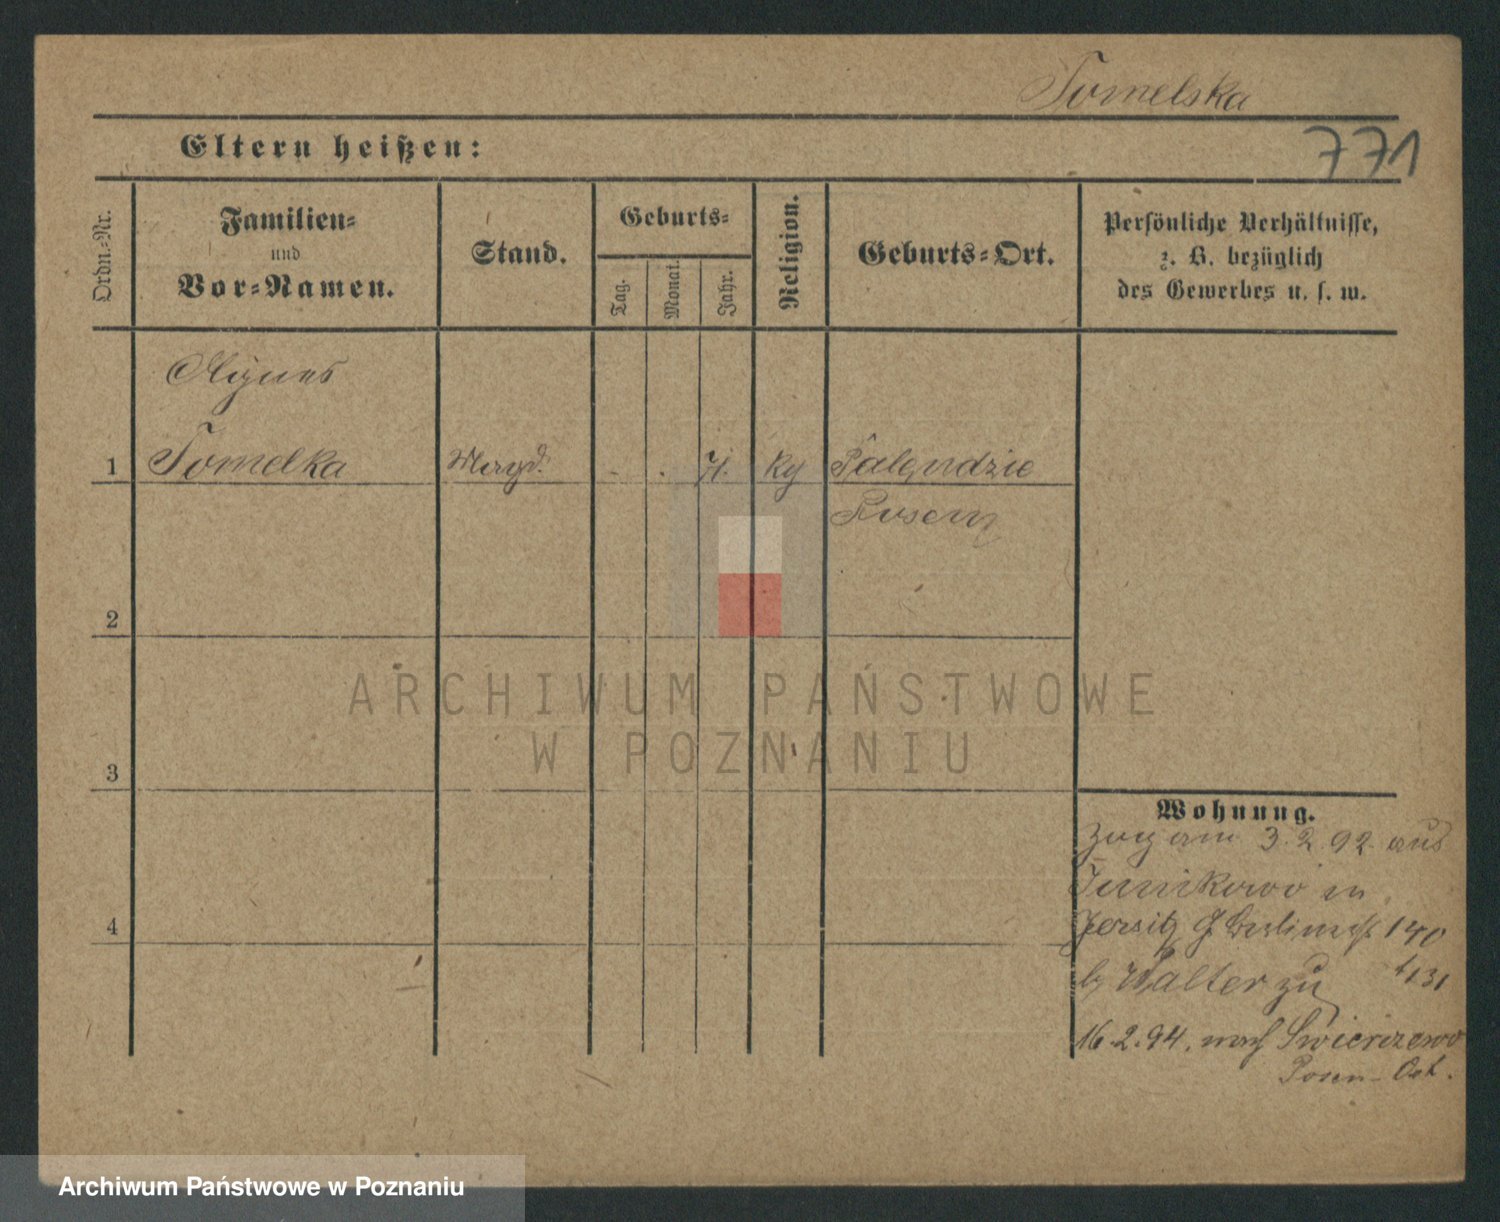 Tomelska
Eltern heißen:
771
Ordn.-Nr.
Familien-
und
Vor-Namen.
Stand.
Geburts-
Tag.
Monat.
Jahr.
Religion.
Geburts-Ort.
Persönliche Verhältnisse,
z. B. bezüglich
des Gewerbes u. s. w.
Agnes
1 Tomelka Magd. 71. Palendzie
Posen
2
3
4
Wohnung.
Zug am 3.2.92 aus
Junikowo in
Jersitz 140
b/ Walter zu 131
16.2.94. nach Swierczewo
Posen-Ost.
ARCHIWUM PAŃSTWOWE
W POZNANIU
Archiwum Państwowe w Poznaniu